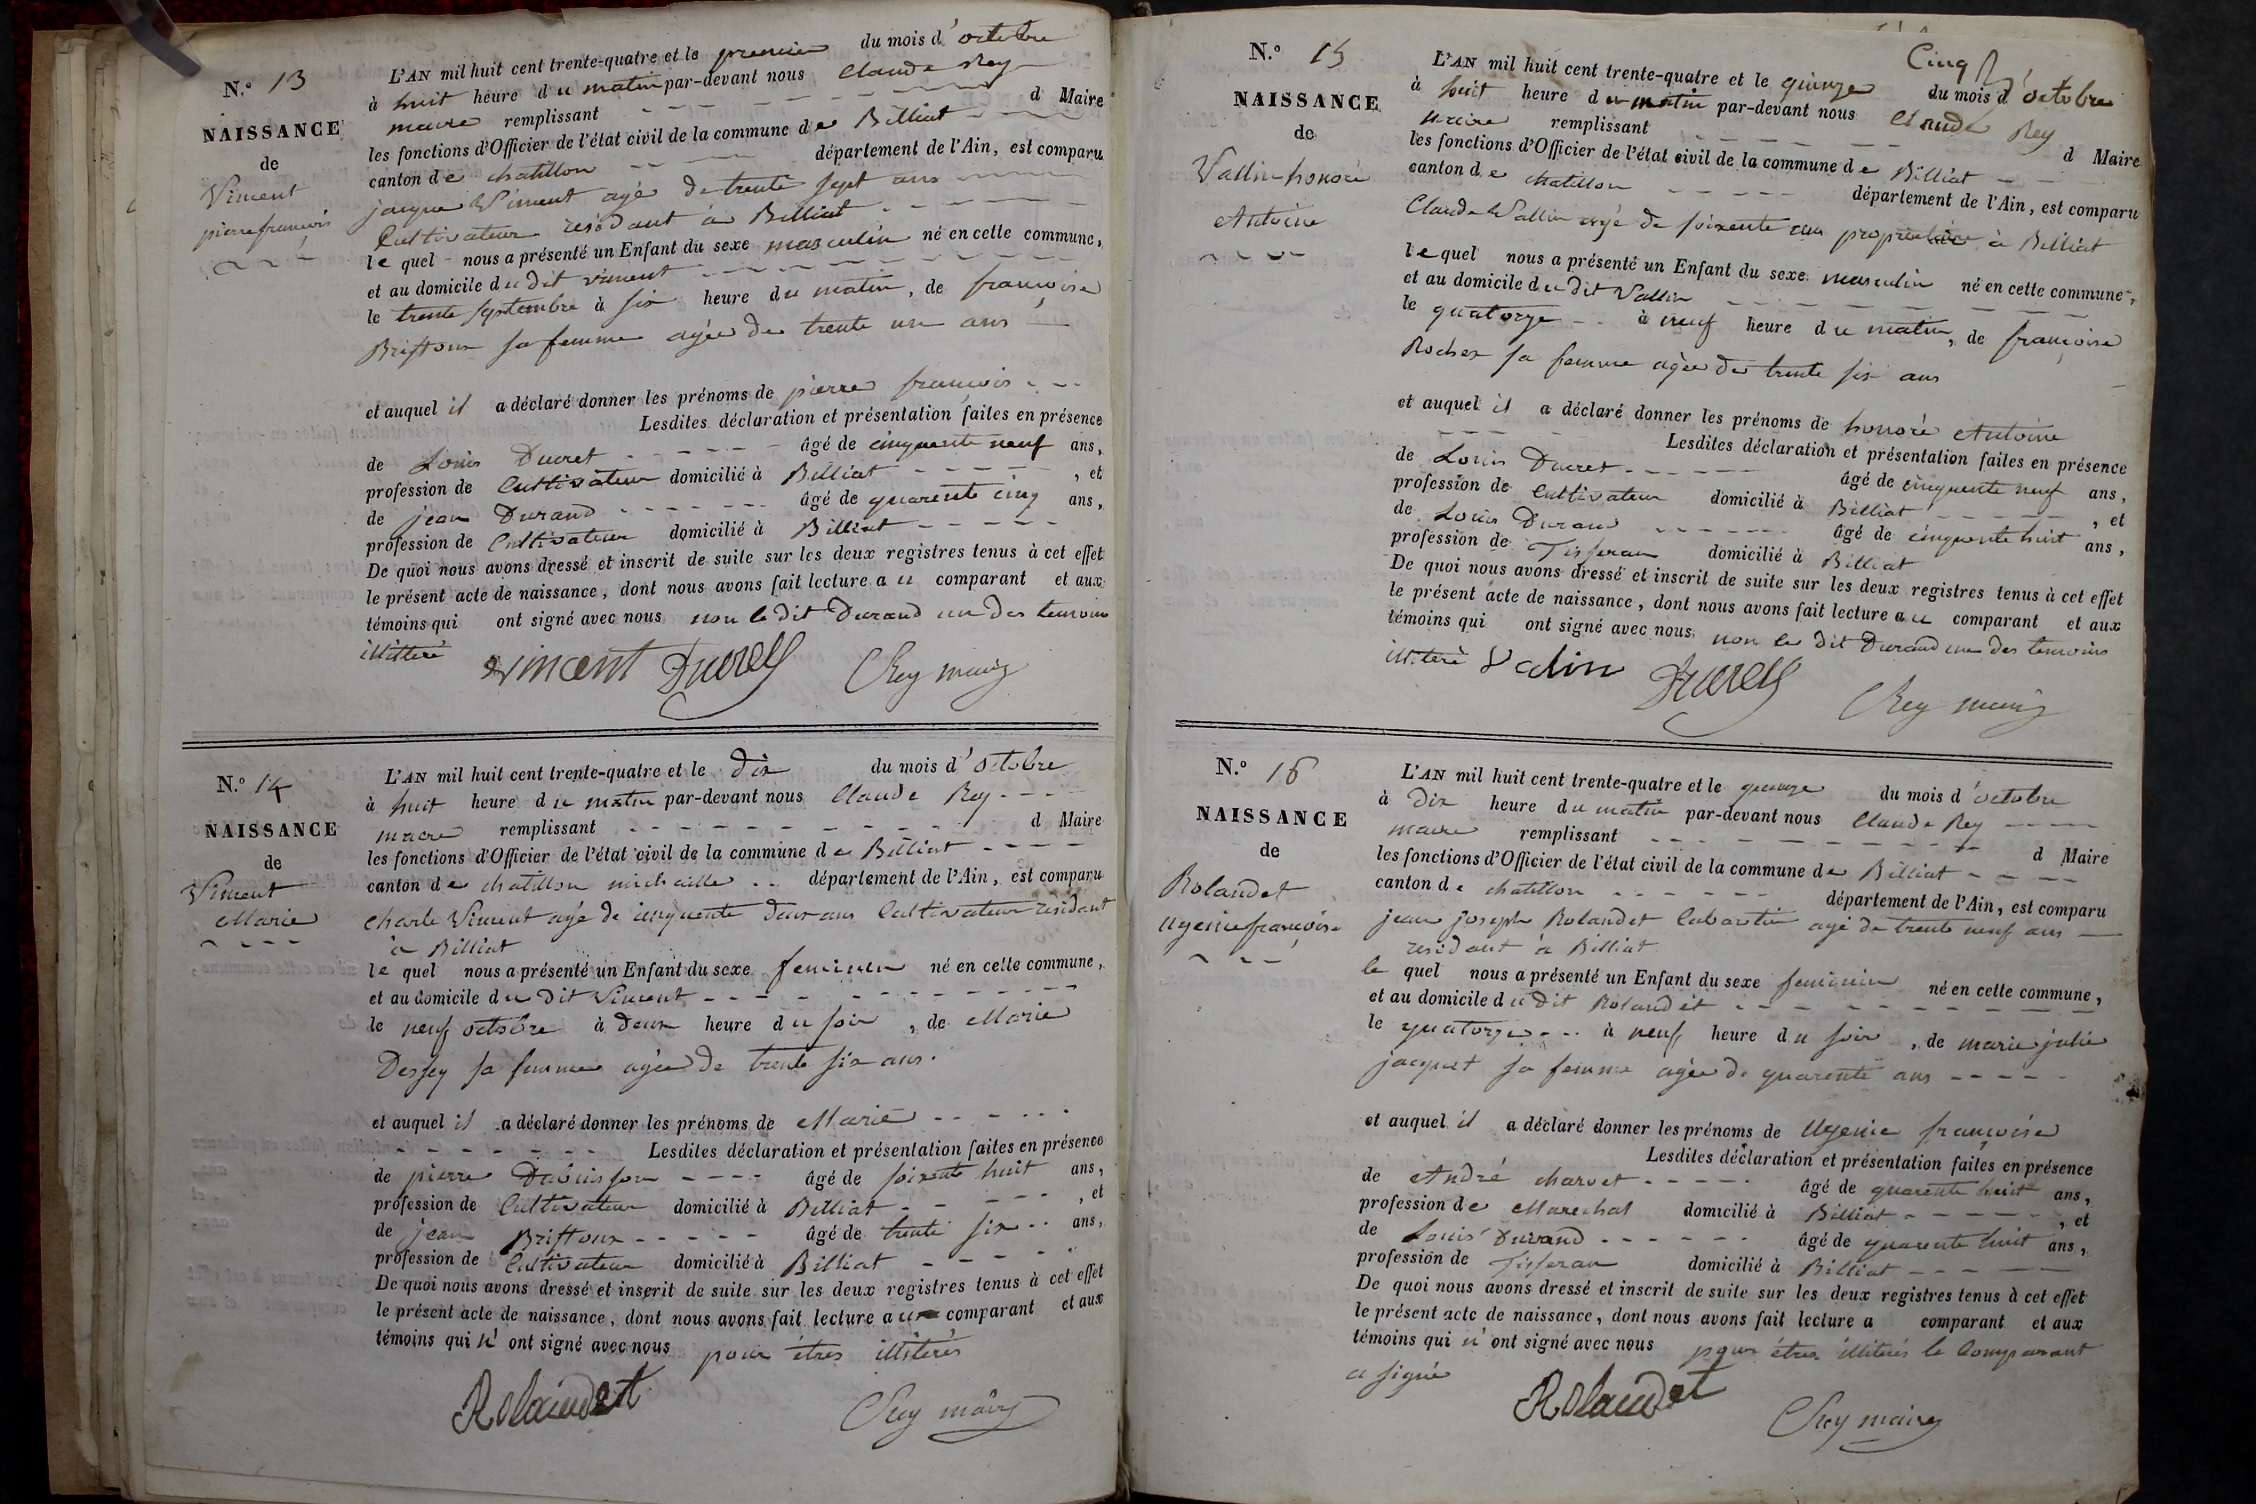 N.º 13
NAISSANCE
de
Vincent
pierre francois
L'AN mil huit cent trente-quatre et le premier du mois d'octobre
à huit heure du matin par-devant nous Claude Rey
maire remplissant d Maire
les fonctions d'Officier de l'état civil de la commune de Billiat
canton de chatillon département de l'Ain, est comparu
jacque Vincent agé de trente sept ans
Cultivateur résidant à Billiat
le quel nous a présenté un Enfant du sexe masculin né en cette commune,
et au domicile du dit vincent
le trente septembre à six heure du matin, de francoise
Bristour sa femme agée de trente un ans
et auquel il a déclaré donner les prénoms de pierre francois
Lesdites déclaration et présentation faites en présence
de Louis Ducret âgé de cinquente neuf ans,
profession de Cultivateur domicilié à Billiat , et
de jean Durand âgé de quarente cinq ans,
profession de Cultivateur domicilié à Billiat
De quoi nous avons dressé et inscrit de suite sur les deux registres tenus à cet effet
le présent acte de naissance, dont nous avons fait lecture au comparant et aux
témoins qui ont signé avec nous non le dit Durand un des temoins
illitteré Vincent Ducret Rey maire
N.º 14
NAISSANCE
de
Vincent
Marie
L'AN mil huit cent trente-quatre et le dix du mois d'octobre
à huit heure du matin par-devant nous Claude Rey
maire remplissant d Maire
les fonctions d'Officier de l'état civil de la commune de Billiat
canton de chatillon michaille département de l'Ain, est comparu
Charle Vincent agé de cinquente deux ans Cultivateur residant
à Billiat
le quel nous a présenté un Enfant du sexe feminin né en cette commune,
et au domicile du dit Vincent
le neuf octobre à deux heure du soir, de Marie
sa femme agée de trente six ans.
et auquel il a déclaré donner les prénoms de Marie
Lesdites déclaration et présentation faites en présence
de pierre Dubuisson âgé de soixente huit ans,
profession de Cultivateur domicilié à Billiat , et
de jean Bristour âgé de trente six ans,
profession de Cultivateur domicilié à Billiat
De quoi nous avons dressé et inscrit de suite sur les deux registres tenus à cet effet
le présent acte de naissance, dont nous avons fait lecture au comparant et aux
témoins qui n'ont signé avec nous pour étres illiterés
Rolandet Rey maire
Cinq
N.º 15
NAISSANCE
de
Vallin honoré
Antoine
L'AN mil huit cent trente-quatre et le quinze du mois d'octobre
à huit heure du matin par-devant nous Claude Rey
maire remplissant d Maire
les fonctions d'Officier de l'état civil de la commune de Billiat
canton de chatillon département de l'Ain, est comparu
Claude Vallin agé de soixente ans propriétaire à Billiat
le quel nous a présenté un Enfant du sexe masculin né en cette commune,
et au domicile du dit Vallin
le quatorze à neuf heure du matin, de francoise
Rochex sa femme agée de trente six ans
et auquel il a déclaré donner les prénoms de honoré Antoine
Lesdites déclaration et présentation faites en présence
de Louis Ducret âgé de cinquente neuf ans,
profession de Cultivateur domicilié à Billiat , et
de Louis Durand âgé de cinquente huit ans,
profession de Tisseran domicilié à Billiat
De quoi nous avons dressé et inscrit de suite sur les deux registres tenus à cet effet
le présent acte de naissance, dont nous avons fait lecture au comparant et aux
témoins qui ont signé avec nous non le dit Durand un des temoins
illiteré Valin Ducret Rey maire
N.º 16
NAISSANCE
de
Rolandet
Ugenie francoise
L'AN mil huit cent trente-quatre et le quinze du mois d'octobre
à dix heure du matin par-devant nous Claude Rey
maire remplissant d Maire
les fonctions d'Officier de l'état civil de la commune de Billiat
canton de chatillon département de l'Ain, est comparu
jean joseph Rolandet Cabaretier agé de trente neuf ans
residant à Billiat
le quel nous a présenté un Enfant du sexe feminin né en cette commune,
et au domicile du dit Rolandet
le quatorze à neuf heure du soir, de marie julie
jacquet sa femme agée de quarente ans
et auquel il a déclaré donner les prénoms de Ugenie francoise
Lesdites déclaration et présentation faites en présence
de André charvet âgé de quarente huit ans,
profession de Marechal domicilié à Billiat , et
de Louis Durand âgé de quarente huit ans,
profession de Tisseran domicilié à Billiat
De quoi nous avons dressé et inscrit de suite sur les deux registres tenus à cet effet
le présent acte de naissance, dont nous avons fait lecture a comparant et aux
témoins qui n'ont signé avec nous pour étres illiterés le Comparant
a signé Rolandet Rey maire